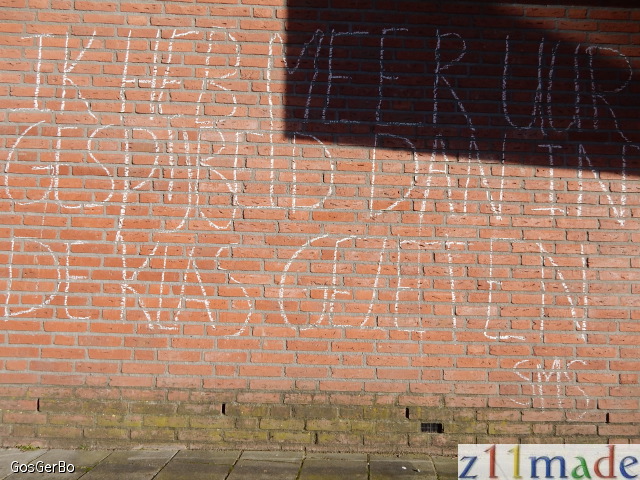 IK HEB MEER UUR
GESPIJBELD DAN IN
DE KLAS GEZETEN
SMS
GosGerBo
z11made